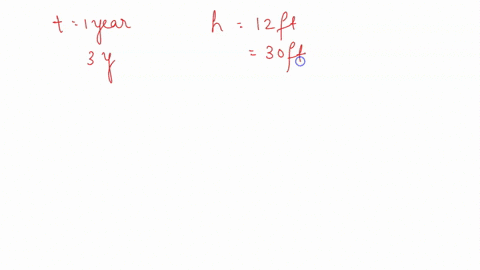 t = 1 year h = 12 ft
3 y = 30 ft